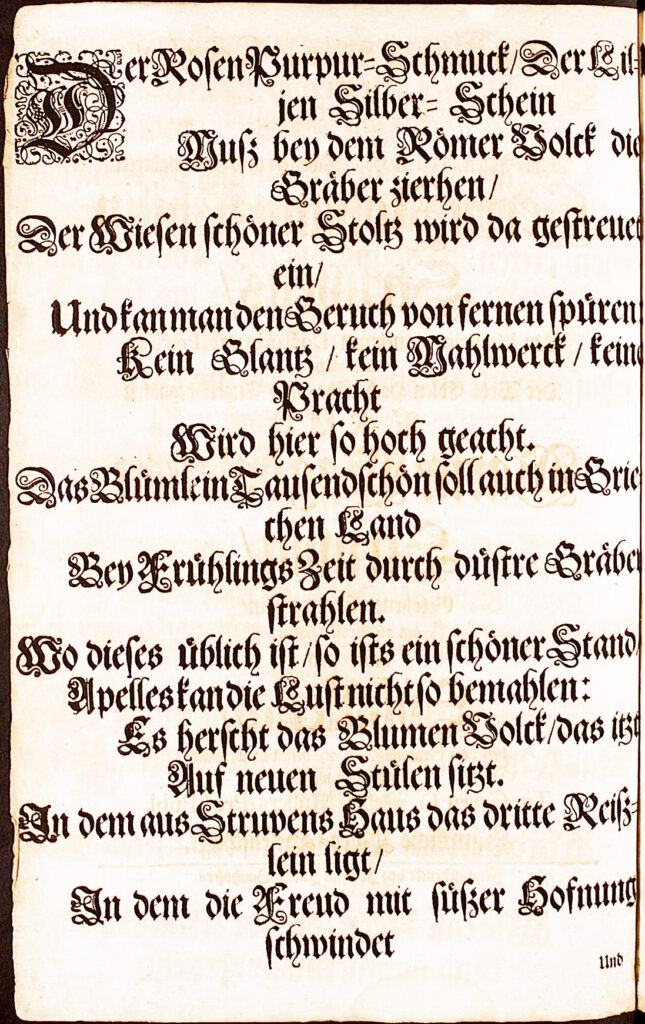 Der Rosen Purpur-Schmuck/ Der Lil-
jen Silber-Schein
Muß bey dem Römer Volck die
Gräber zierhen/
Der Wiesen schöner Stoltz wird da gestreuet
ein/
Und kan man den Geruch von fernen spüren:
Kein Glantz / kein Mahlwerck / keine
Pracht
Wird hier so hoch geacht.
Das Blümlein Tausendschön soll auch in Grie-
chen Land
Bey Frühlings Zeit durch düstre Gräber
strahlen.
Wo dieses üblich ist/ so ists ein schöner Stand/
Apelles kan die Lust nicht so bemahlen:
Es herscht das Blumen Volck/ das itzt
Auf neuen Stülen sitzt.
In dem aus Struvens Haus das dritte Reiß-
lein ligt/
In dem die Freud mit süßer Hofnung
schwindet
Und